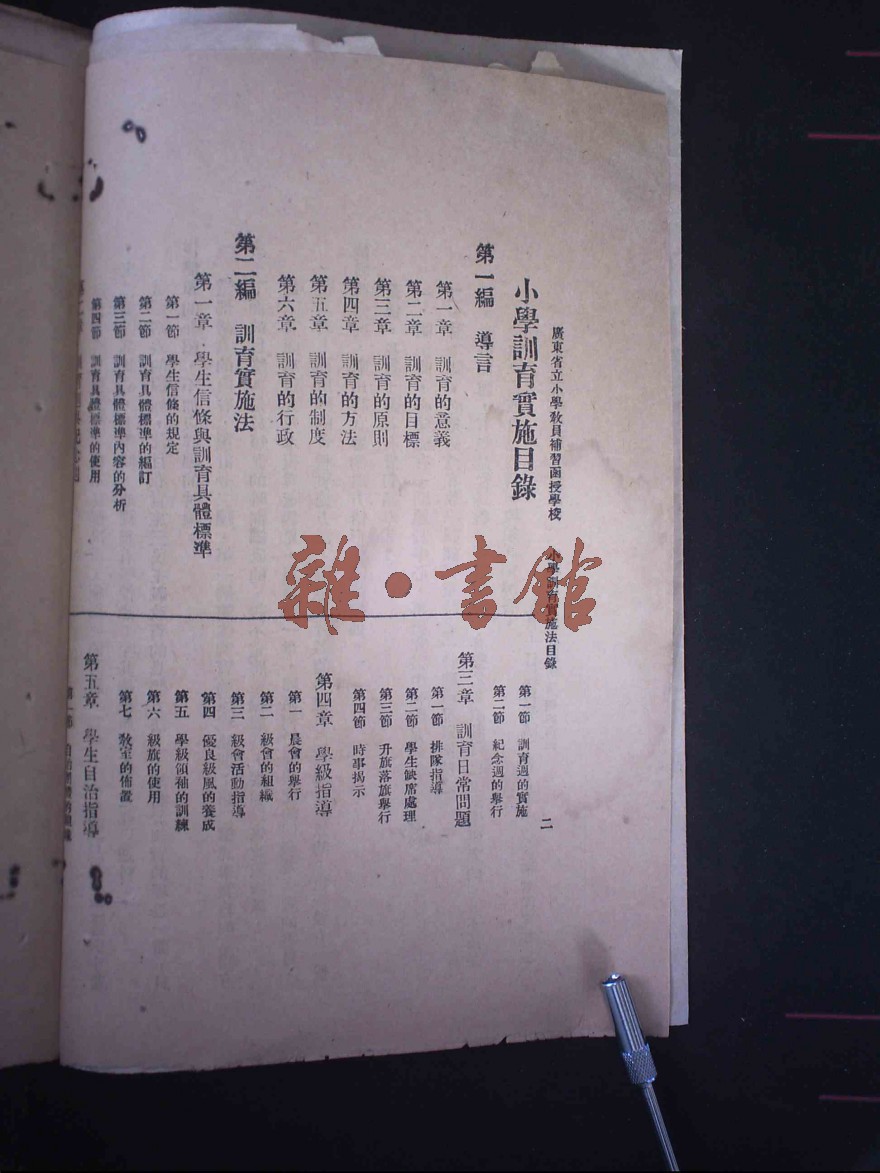 廣東省立小學敎員補習函授學校 小學訓育實施法目錄 二
小學訓育實施目錄
第一編 導言
第一章 訓育的意義
第二章 訓育的目標
第三章 訓育的原則
第四章 訓育的方法
第五章 訓育的制度
第六章 訓育的行政
第二編 訓育實施法
第一章 學生信條與訓育具體標準
第一節 學生信條的規定
第二節 訓育具體標準的編訂
第三節 訓育具體標準內容的分析
第四節 訓育具體標準的使用
第一節 訓育週的實施
第二節 紀念週的舉行
第三章 訓育日常問題
第一節 排隊指導
第二節 學生缺席處理
第三節 升旗落旗舉行
第四節 時事揭示
第四章 學級指導
第一 晨會的舉行
第二 級會的組織
第三 級會活動指導
第四 優良級風的養成
第五 學級領袖的訓練
第六 級旗的使用
第七 敎室的佈置
第五章 學生自治指導
雜·書館